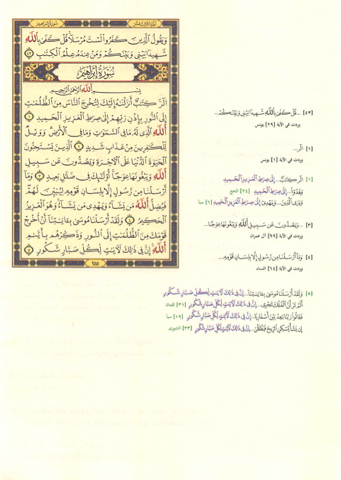 وَيَقُولُ الَّذِينَ كَفَرُوا لَسْتَ مُرْسَلًا قُلْ كَفَىٰ بِاللَّهِ
شَهِيدًا بَيْنِي وَبَيْنَكُمْ وَمَنْ عِندَهُ عِلْمُ الْكِتَٰبِ ٤٣
سُورَةُ إِبْرَاهِيمَ
بِسْمِ اللَّهِ الرَّحْمَٰنِ الرَّحِيمِ
الٓر كِتَٰبٌ أَنزَلْنَٰهُ إِلَيْكَ لِتُخْرِجَ النَّاسَ مِنَ الظُّلُمَٰتِ
إِلَى النُّورِ بِإِذْنِ رَبِّهِمْ إِلَىٰ صِرَٰطِ الْعَزِيزِ الْحَمِيدِ ١
اللَّهِ الَّذِي لَهُ مَا فِي السَّمَٰوَٰتِ وَمَا فِي الْأَرْضِ وَوَيْلٌ
لِّلْكَٰفِرِينَ مِنْ عَذَابٍ شَدِيدٍ ٢ الَّذِينَ يَسْتَحِبُّونَ
الْحَيَوٰةَ الدُّنْيَا عَلَى الْآخِرَةِ وَيَصُدُّونَ عَن سَبِيلِ
اللَّهِ وَيَبْغُونَهَا عِوَجًا أُولَٰئِكَ فِي ضَلَٰلٍ بَعِيدٍ ٣ وَمَا
أَرْسَلْنَا مِن رَّسُولٍ إِلَّا بِلِسَانِ قَوْمِهِ لِيُبَيِّنَ لَهُمْ
فَيُضِلُّ اللَّهُ مَن يَشَاءُ وَيَهْدِي مَن يَشَاءُ وَهُوَ الْعَزِيزُ
الْحَكِيمُ ٤ وَلَقَدْ أَرْسَلْنَا مُوسَىٰ بِـَٔايَٰتِنَا أَنْ أَخْرِجْ
قَوْمَكَ مِنَ الظُّلُمَٰتِ إِلَى النُّورِ وَذَكِّرْهُم بِأَيَّىٰمِ
اللَّهِ إِنَّ فِي ذَٰلِكَ لَآيَٰتٍ لِّكُلِّ صَبَّارٍ شَكُورٍ ٥
٢٥٥
[٤٣] ...قُلْ كَفَىٰ بِاللَّهِ شَهِيدًا بَيْنِي وَبَيْنَكُمْ...
وردت في الآية [٢٩] يونس
[١] الٓر...
وردت في الآية [١] يونس
[١] الٓر كِتَٰبٌ... إِلَىٰ صِرَٰطِ الْعَزِيزِ الْحَمِيدِ
وَهُدُوا... إِلَىٰ صِرَٰطِ الْحَمِيدِ [٢٤] الحج
وَيَرَى الَّذِينَ... وَيَهْدِي إِلَىٰ صِرَٰطِ الْعَزِيزِ الْحَمِيدِ [٦] سبأ
[٣] ...وَيَصُدُّونَ عَن سَبِيلِ اللَّهِ وَيَبْغُونَهَا عِوَجًا...
وردت في الآية [٩٩] آل عمران
[٤] وَمَا أَرْسَلْنَا مِن رَّسُولٍ إِلَّا بِلِسَانِ قَوْمِهِ...
وردت في الآية [٦٤] النساء
[٥] وَلَقَدْ أَرْسَلْنَا مُوسَىٰ بِـَٔايَٰتِنَا... إِنَّ فِي ذَٰلِكَ لَآيَٰتٍ لِّكُلِّ صَبَّارٍ شَكُورٍ
أَلَمْ تَرَ أَنَّ الْفُلْكَ تَجْرِي... إِنَّ فِي ذَٰلِكَ لَآيَٰتٍ لِّكُلِّ صَبَّارٍ شَكُورٍ [٣١] لقمان
فَقَالُوا رَبَّنَا بَٰعِدْ بَيْنَ أَسْفَارِنَا... إِنَّ فِي ذَٰلِكَ لَآيَٰتٍ لِّكُلِّ صَبَّارٍ شَكُورٍ [١٩] سبأ
إِن يَشَأْ يُسْكِنِ الرِّيحَ فَيَظْلَلْنَ... إِنَّ فِي ذَٰلِكَ لَآيَٰتٍ لِّكُلِّ صَبَّارٍ شَكُورٍ [٣٣] الشورى